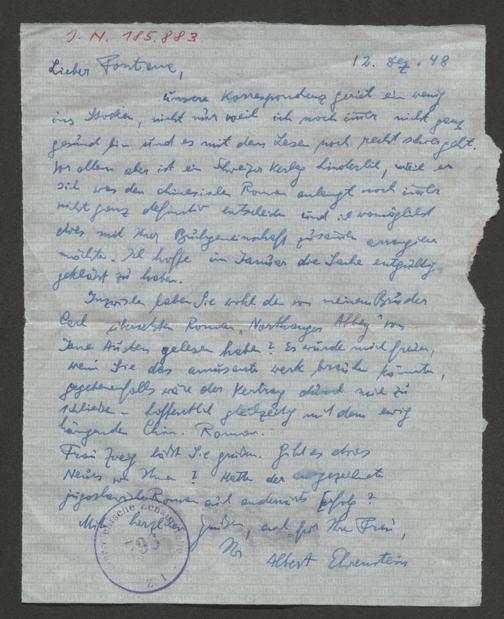 J. N. 185.883
12. Dez. 48
Lieber Fontana,
unsere Korrespondenz geriet ein wenig
ins Stocken, nicht nur weil ich noch immer nicht ganz
gesund bin und es mit dem Lesen noch recht schwer geht.
Vor allem aber ist ein Schweizer Verlag hinderlich, weil er
sich was den chinesischen Roman anlangt noch immer
nicht ganz definitiv entschieden und es womöglich
etwas mit Ihrer Buchgemeinschaft zusammen arrangieren
möchte. Ich hoffe im Januar die Sache endgültig
geklärt zu haben.
Inzwischen haben Sie wohl den von meinem Bruder
Carl übersetzten Roman "Northanger Abbey" von
Jane Austen gelesen haben? Es würde mich freuen,
wenn Sie das amüsante Werk brauchen könnten,
gegebenenfalls wäre der Vertrag durch mich zu
schließen - hoffentlich gleichzeitig mit dem ewig
hängenden Chin. Roman.
Frau Zweig läßt Sie grüßen. Gibt es etwas
Neues von Ihnen? Hatte der ausgezeichnete
jugoslavische Roman auch anderwärts Erfolg?
Mit herzlichen Grüßen, auch für Ihre Frau,
Ihr
Albert Ehrenstein